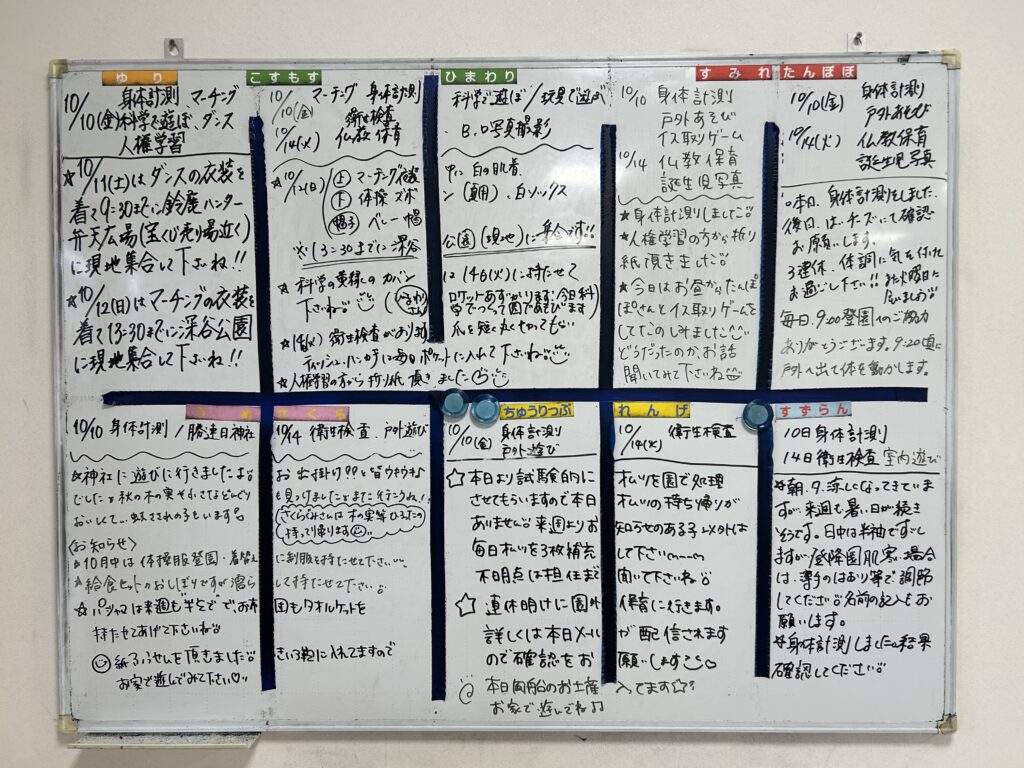 ゆり
10/ 身体計測 マーチング
10(金)科学で遊ぼ、ダンス
人権学習
☆10/11(土)はダンスの衣装を
着て9:30までに鈴鹿ハンター
弁天広場(宝くじ売り場近く)
に現地集合して下さいね!!
☆10/12(日)はマーチングの衣装を
着て13:30までに深谷公園
に現地集合して下さいね!!
こすもす
10/10(金) マーチング 身体計測
10/14(火) 衛生検査 仏教保育
☆10/12(日) 上 マーチング
下 体操ズボ
帽子 ベレー帽
※13:30までに深谷
☆科学の
下さいね
☆14(火) 衛生検査があります
ティッシュ、ハンカチは毎日ポケットに入れて下さいね
☆人権学習の方から折り紙頂きました
ひまわり
科学で遊ぼ/玩具で遊ぼ
B.D写真撮影
中に白の肌着、
白ソックス
公園(現地)に集合です!!
は14日(火)に持たせて
ロケットあずかります:今日科
学でつくって園であそびます
爪を短く丸く切っても
すみれ
10/10 身体計測
戸外あそび
イス取りゲーム
10/14 仏教保育
誕生児写真
☆身体計測しました
☆人権学習の方から折り
紙頂きました
☆今日はお昼からたんぽ
ぽさんとイス取りゲームを
してたのしみました
どうだったのか、お話
聞いてみて下さいね
たんぽぽ
10/10(金) 身体計測
戸外あそび
10/14(火) 仏教保育
誕生児写真
本日、身体計測をしました。
後日、はいチーズにて確認
お願いします。
3連休、体調に気を付けて
お過ごし下さい!! また火曜日に
会いましょう
毎日、9:00登園へのご協力
ありがとうございます。9:20頃に
戸外へ出て体を動かします。
うめ
10/10 身体計測/勝速日神社
☆神社に遊びに行きましたよ
〈お知らせ〉
☆10月中は体操服登園・着替え
☆給食セットのおしぼりですが濡ら
☆パジャマは来週も半そでで、お布
持たせてあげて下さいね
紙ふうせんを頂きました
お家で遊んでみて下さい♡
さくら
10/14 衛生検査、戸外遊び
お出掛け
さくらぐみさんは木の実等ひろったの
持って帰ります
に制服を持たせて下さい
して持たせて下さい
団もタオルケットを
きいろ鞄に入れてますので
ちゅうりっぷ
10/10(金) 身体計測
戸外遊び
☆本日より試験的に
させてもらいますので本日
ありません 来週よりお
毎日オムツを3枚補充
不明点は担任まで
☆連休明けに園外
詳しくは本日メール
ので確認をお
本日風船のお土産
お家で遊んでね♫
れんげ
10/14(火) 衛生検査
オムツを園で処理
オムツの持ち帰りが
知らせのある子以外は
して下さい
聞いて下さいね
保育に行きます。
が配信されます
願いします♡
入ってます☆
すずらん
10日身体計測
14日衛生検査 室内遊び
朝、夕、涼しくなってきていま
すが、来週も暑い日が続き
そうです。日中は半袖ですごし
ますが登降園肌寒い場合
は、薄手のはおり等で調節
してください 名前の記入もお
願いします。
身体計測しました 結果
確認してください